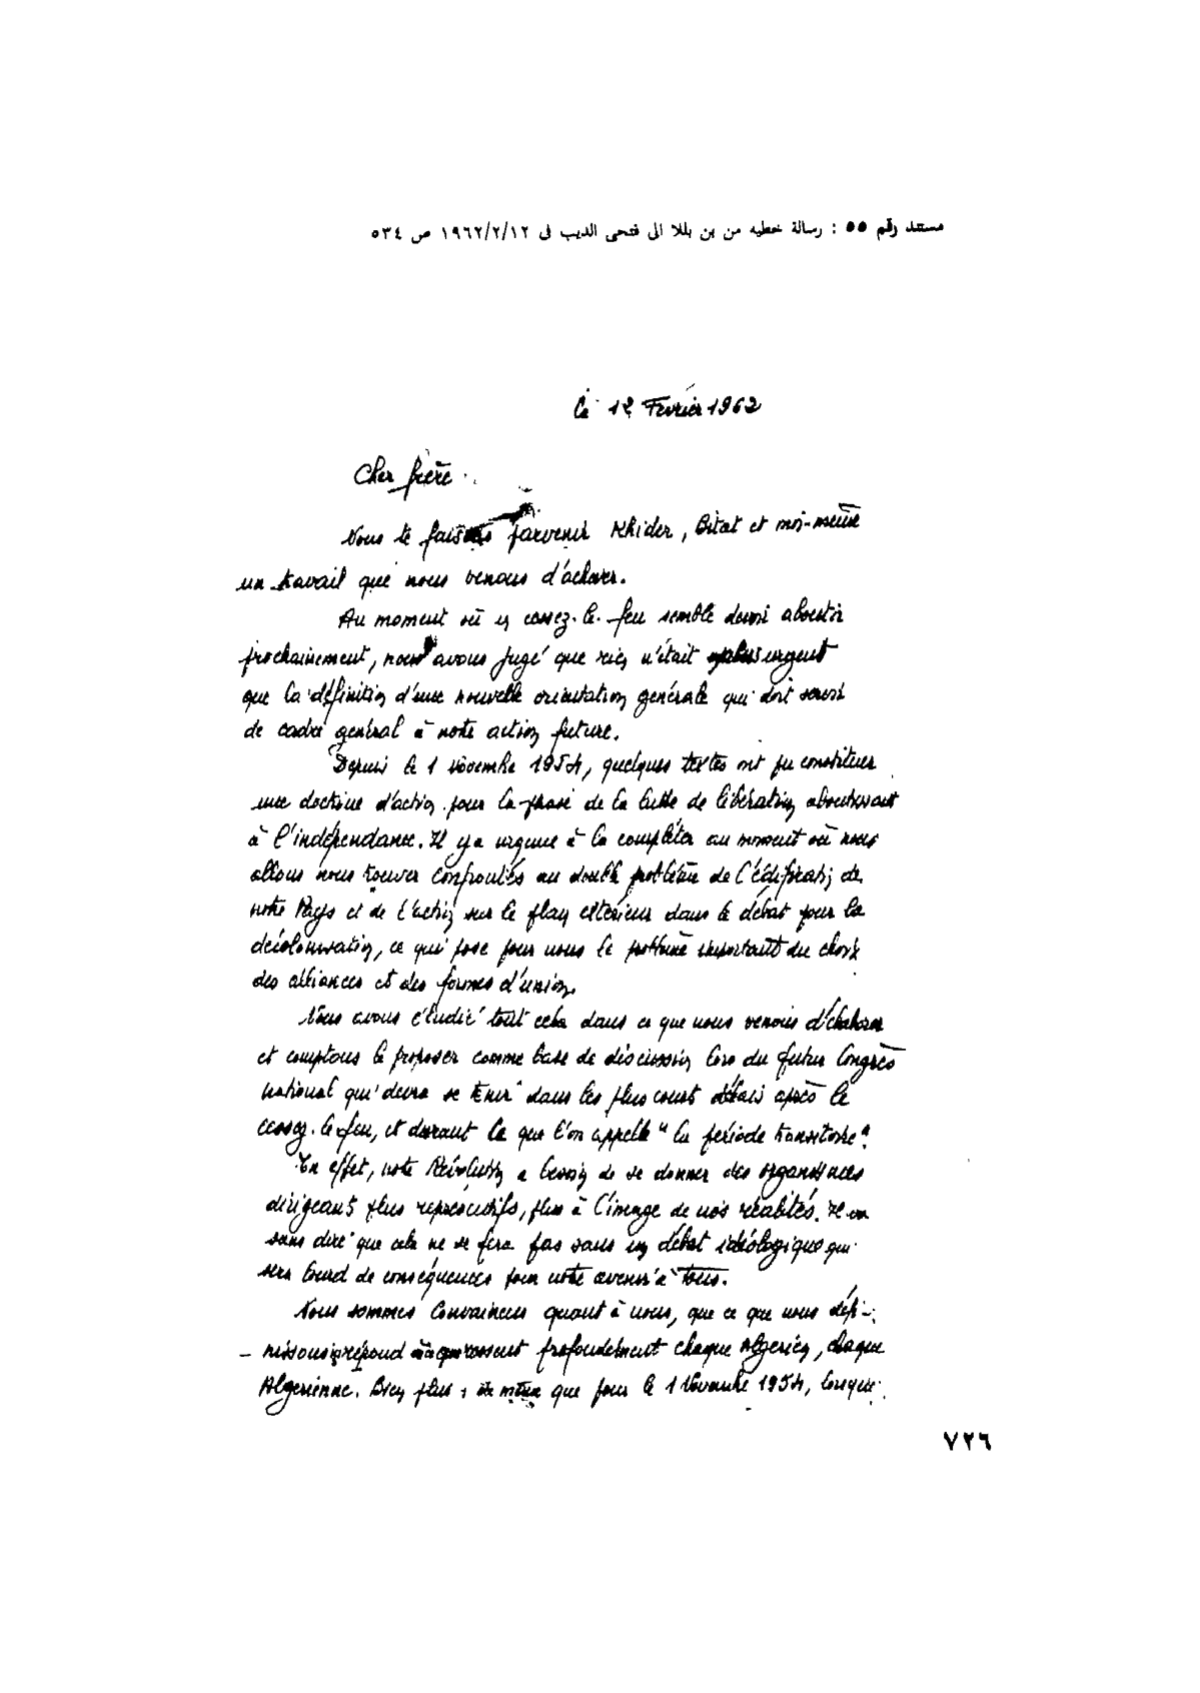 مستند رقم ٥٥ : رسالة خطيه من بن بللا الى فتحى الديب فى ١٩٦٢/٢/١٢ ص ٥٣٤
Le 12 Février 1962
Cher frère
Nous te faisons parvenir Khider, Bitat et moi-même
un travail que nous venons d'achever.
Au moment où un cessez-le-feu semble devoir aboutir
prochainement, nous avons jugé que rien n'était plus urgent
que la définition d'une nouvelle orientation générale qui doit servir
de cadre général à notre action future.
Depuis le 1 Novembre 1954, quelques textes ont pu constituer
une doctrine d'action pour la phase de la lutte de libération aboutissant
à l'indépendance. Il y a urgence à la compléter au moment où nous
allons nous trouver confrontés au double problème de l'édification de
notre Pays et de l'action sur le plan extérieur dans le débat pour la
décolonisation, ce qui pose pour nous le problème important du choix
des alliances et des formes d'union.
Nous avons étudié tout cela dans ce que nous venons d'élaborer
et comptons le proposer comme base de discussion lors du futur Congrès
national qui devra se tenir dans les plus court délais après le
cessez-le-feu, et durant ce que l'on appelle "la période transitoire".
En effet, notre Révolution a besoin de se donner des organismes
dirigeants plus représentatifs, plus à l'image de nos réalités. Il va
sans dire que cela ne se fera pas sans un débat idéologique qui
sera lourd de conséquences pour notre avenir à tous.
Nous sommes convaincus quant à nous, que ce que nous défi-
- nissons répond à ce que ressent profondément chaque Algérien, chaque
Algérienne. Bien plus, de même que pour le 1 Novembre 1954, lorsque
٧٢٦